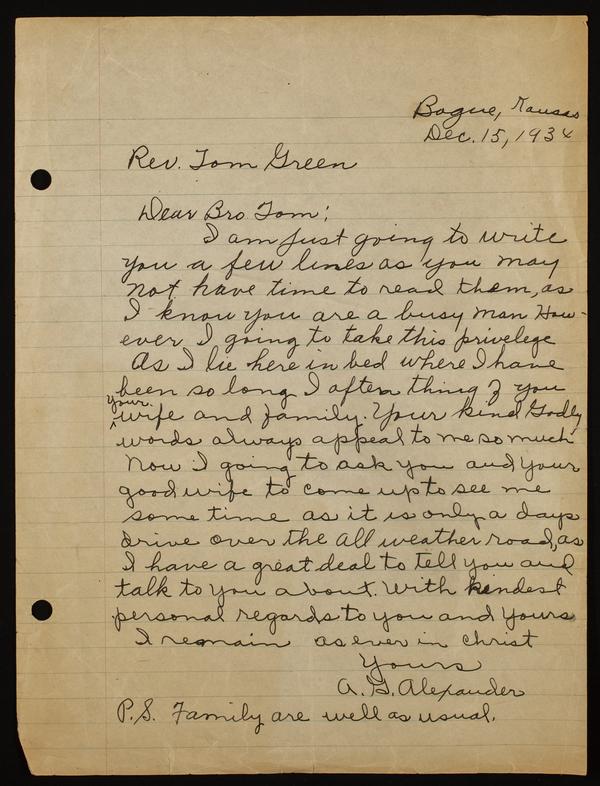 Bogue, Kansas
Dec. 15, 1934
Rev. Tom Green
Dear Bro Tom:
I am just going to write
you a few lines as you may
not have time to read them, as
I know you are a busy man How-
ever I going to take this privelege
As I lie here in bed where I have
been so long I often thing of you
your
wife and family. Your kind Godly
words always appeal to me so much
Now I going to ask you and your
good wife to come up to see me
some time as it is only a days
drive over the all weather road, as
I have a great deal to tell you and
talk to you about. With kindest
personal regards to you and yours
I remain as ever in Christ
Yours
A. G. Alexander
P.S. Family are well as usual.